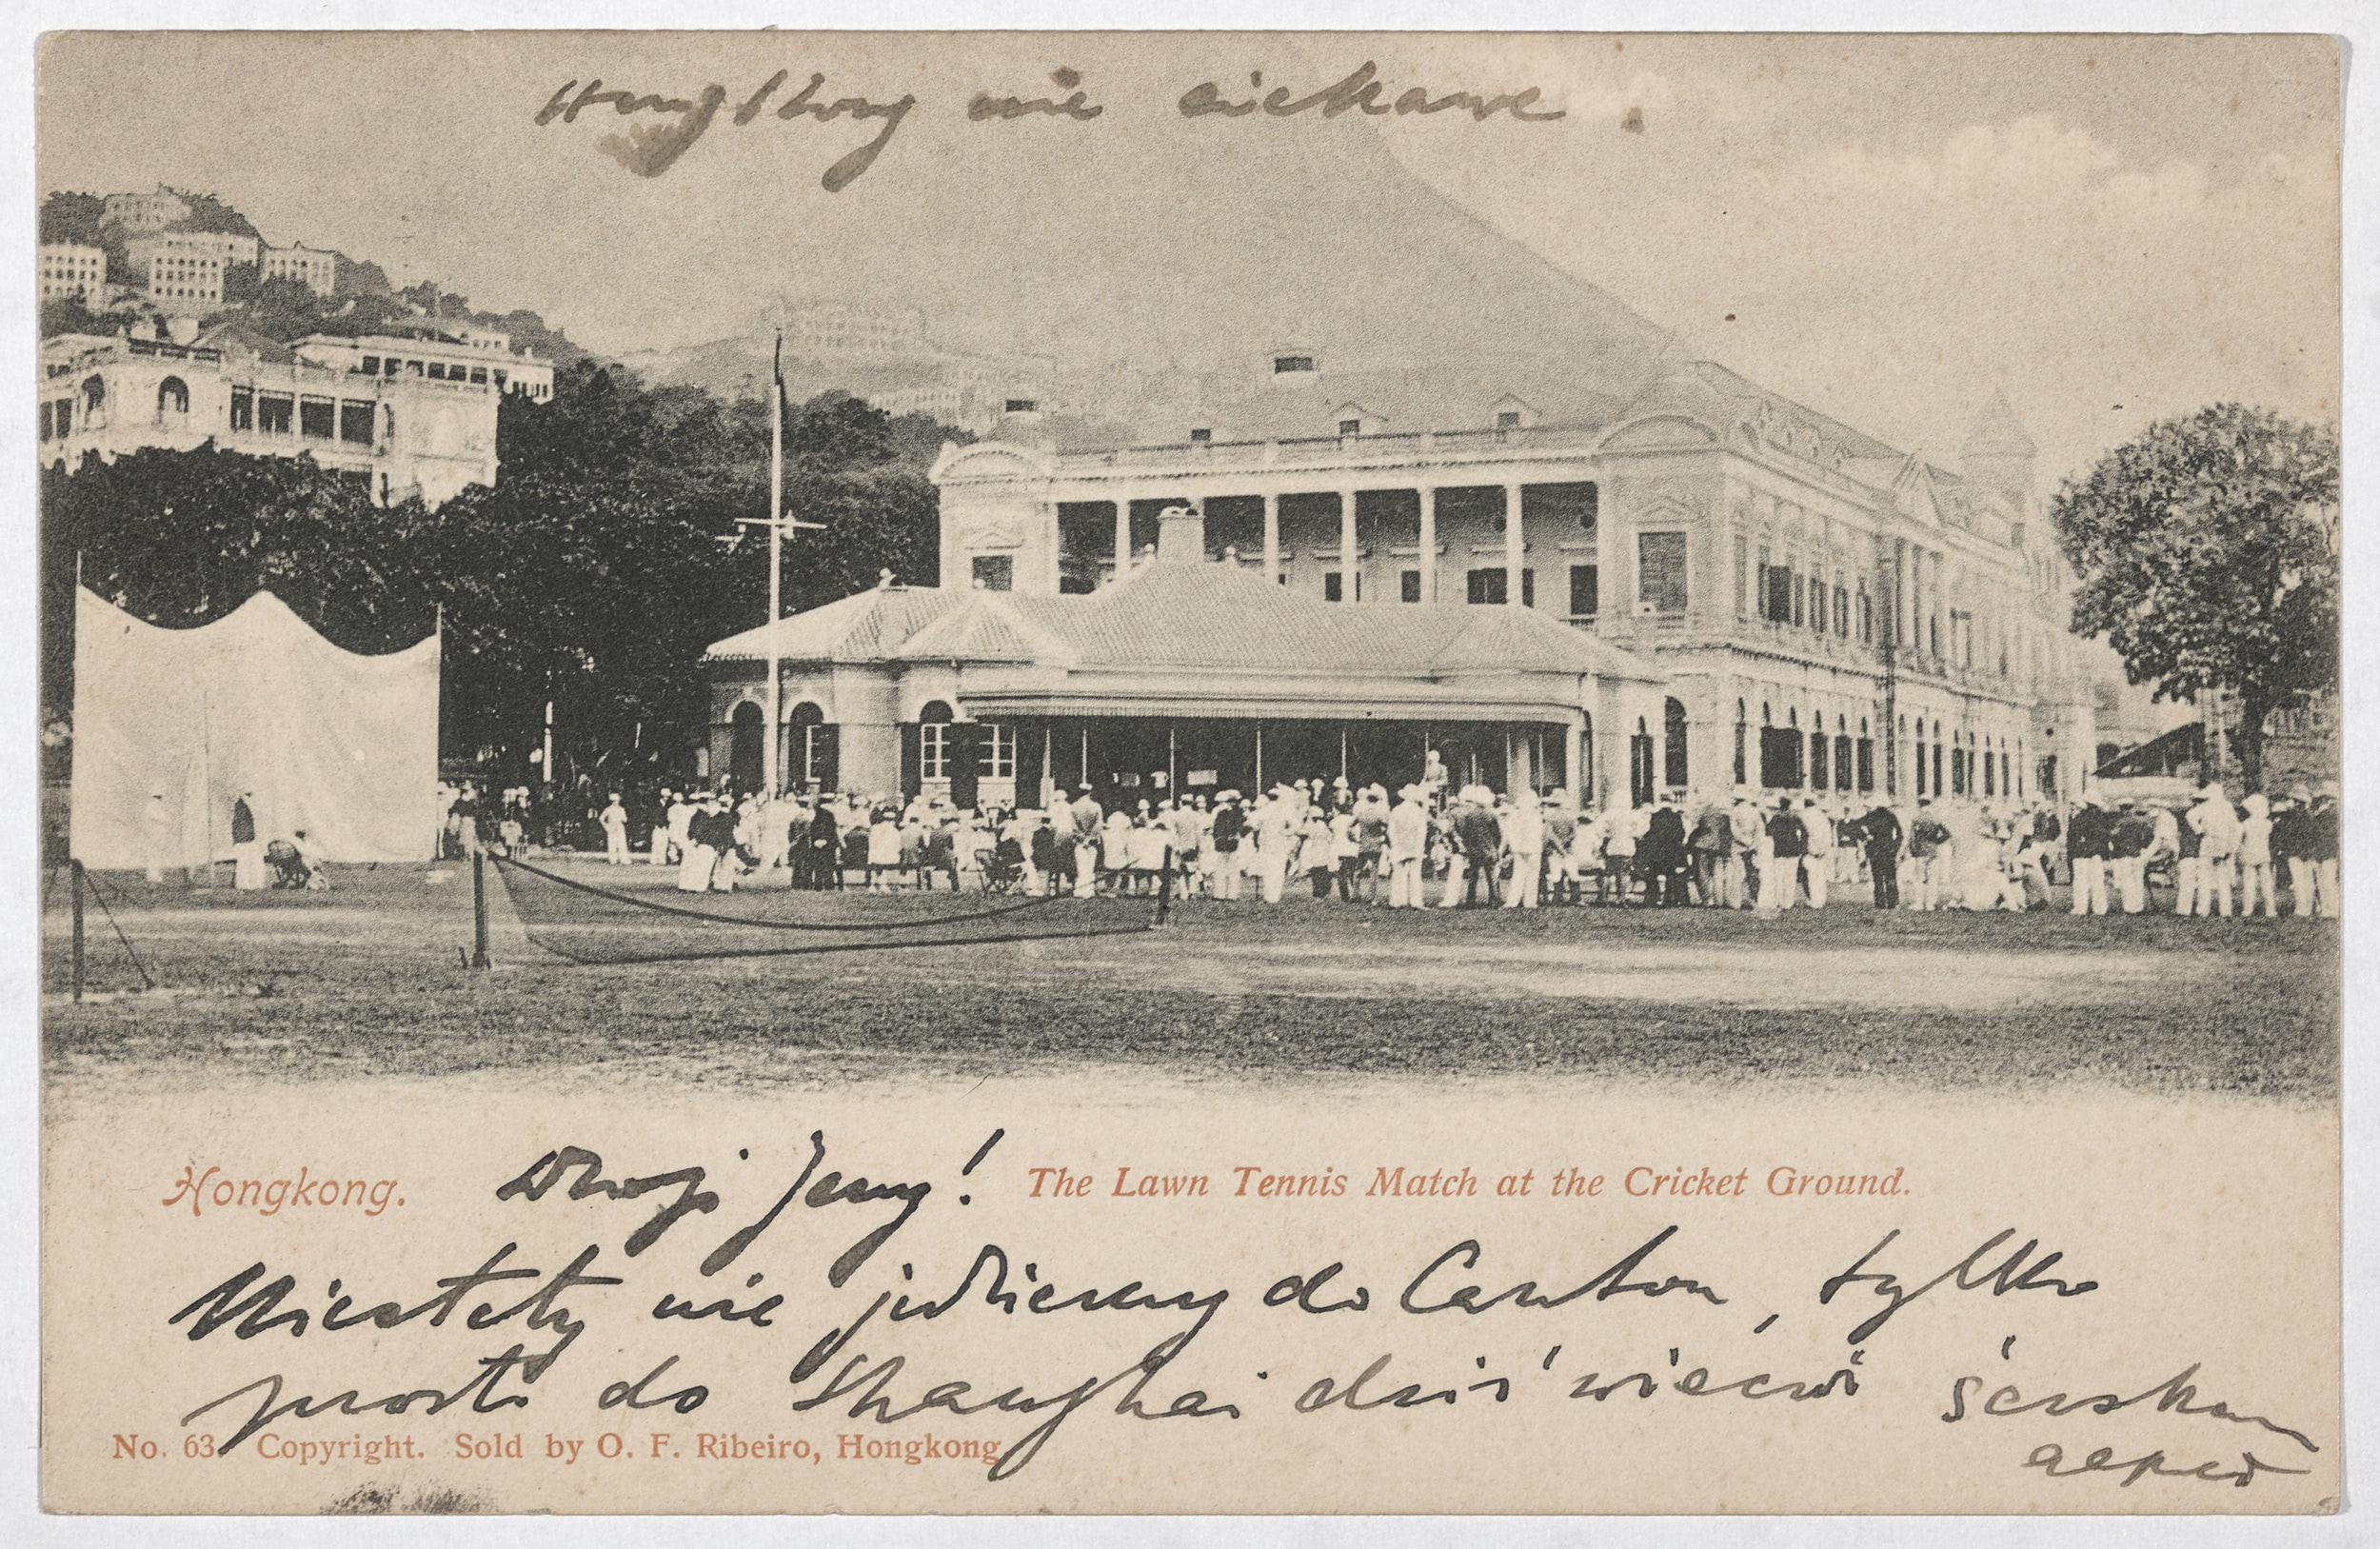 HongKong nie ciekawe.
Hongkong. Drogi Jerzy! The Lawn Tennis Match at the Cricket Ground.
Niestety nie jedziemy do Canton, tylko
prosto do Shanghai dziś wieczór ściskam
No. 63. Copyright. Sold by O. F. Ribeiro, Hongkong